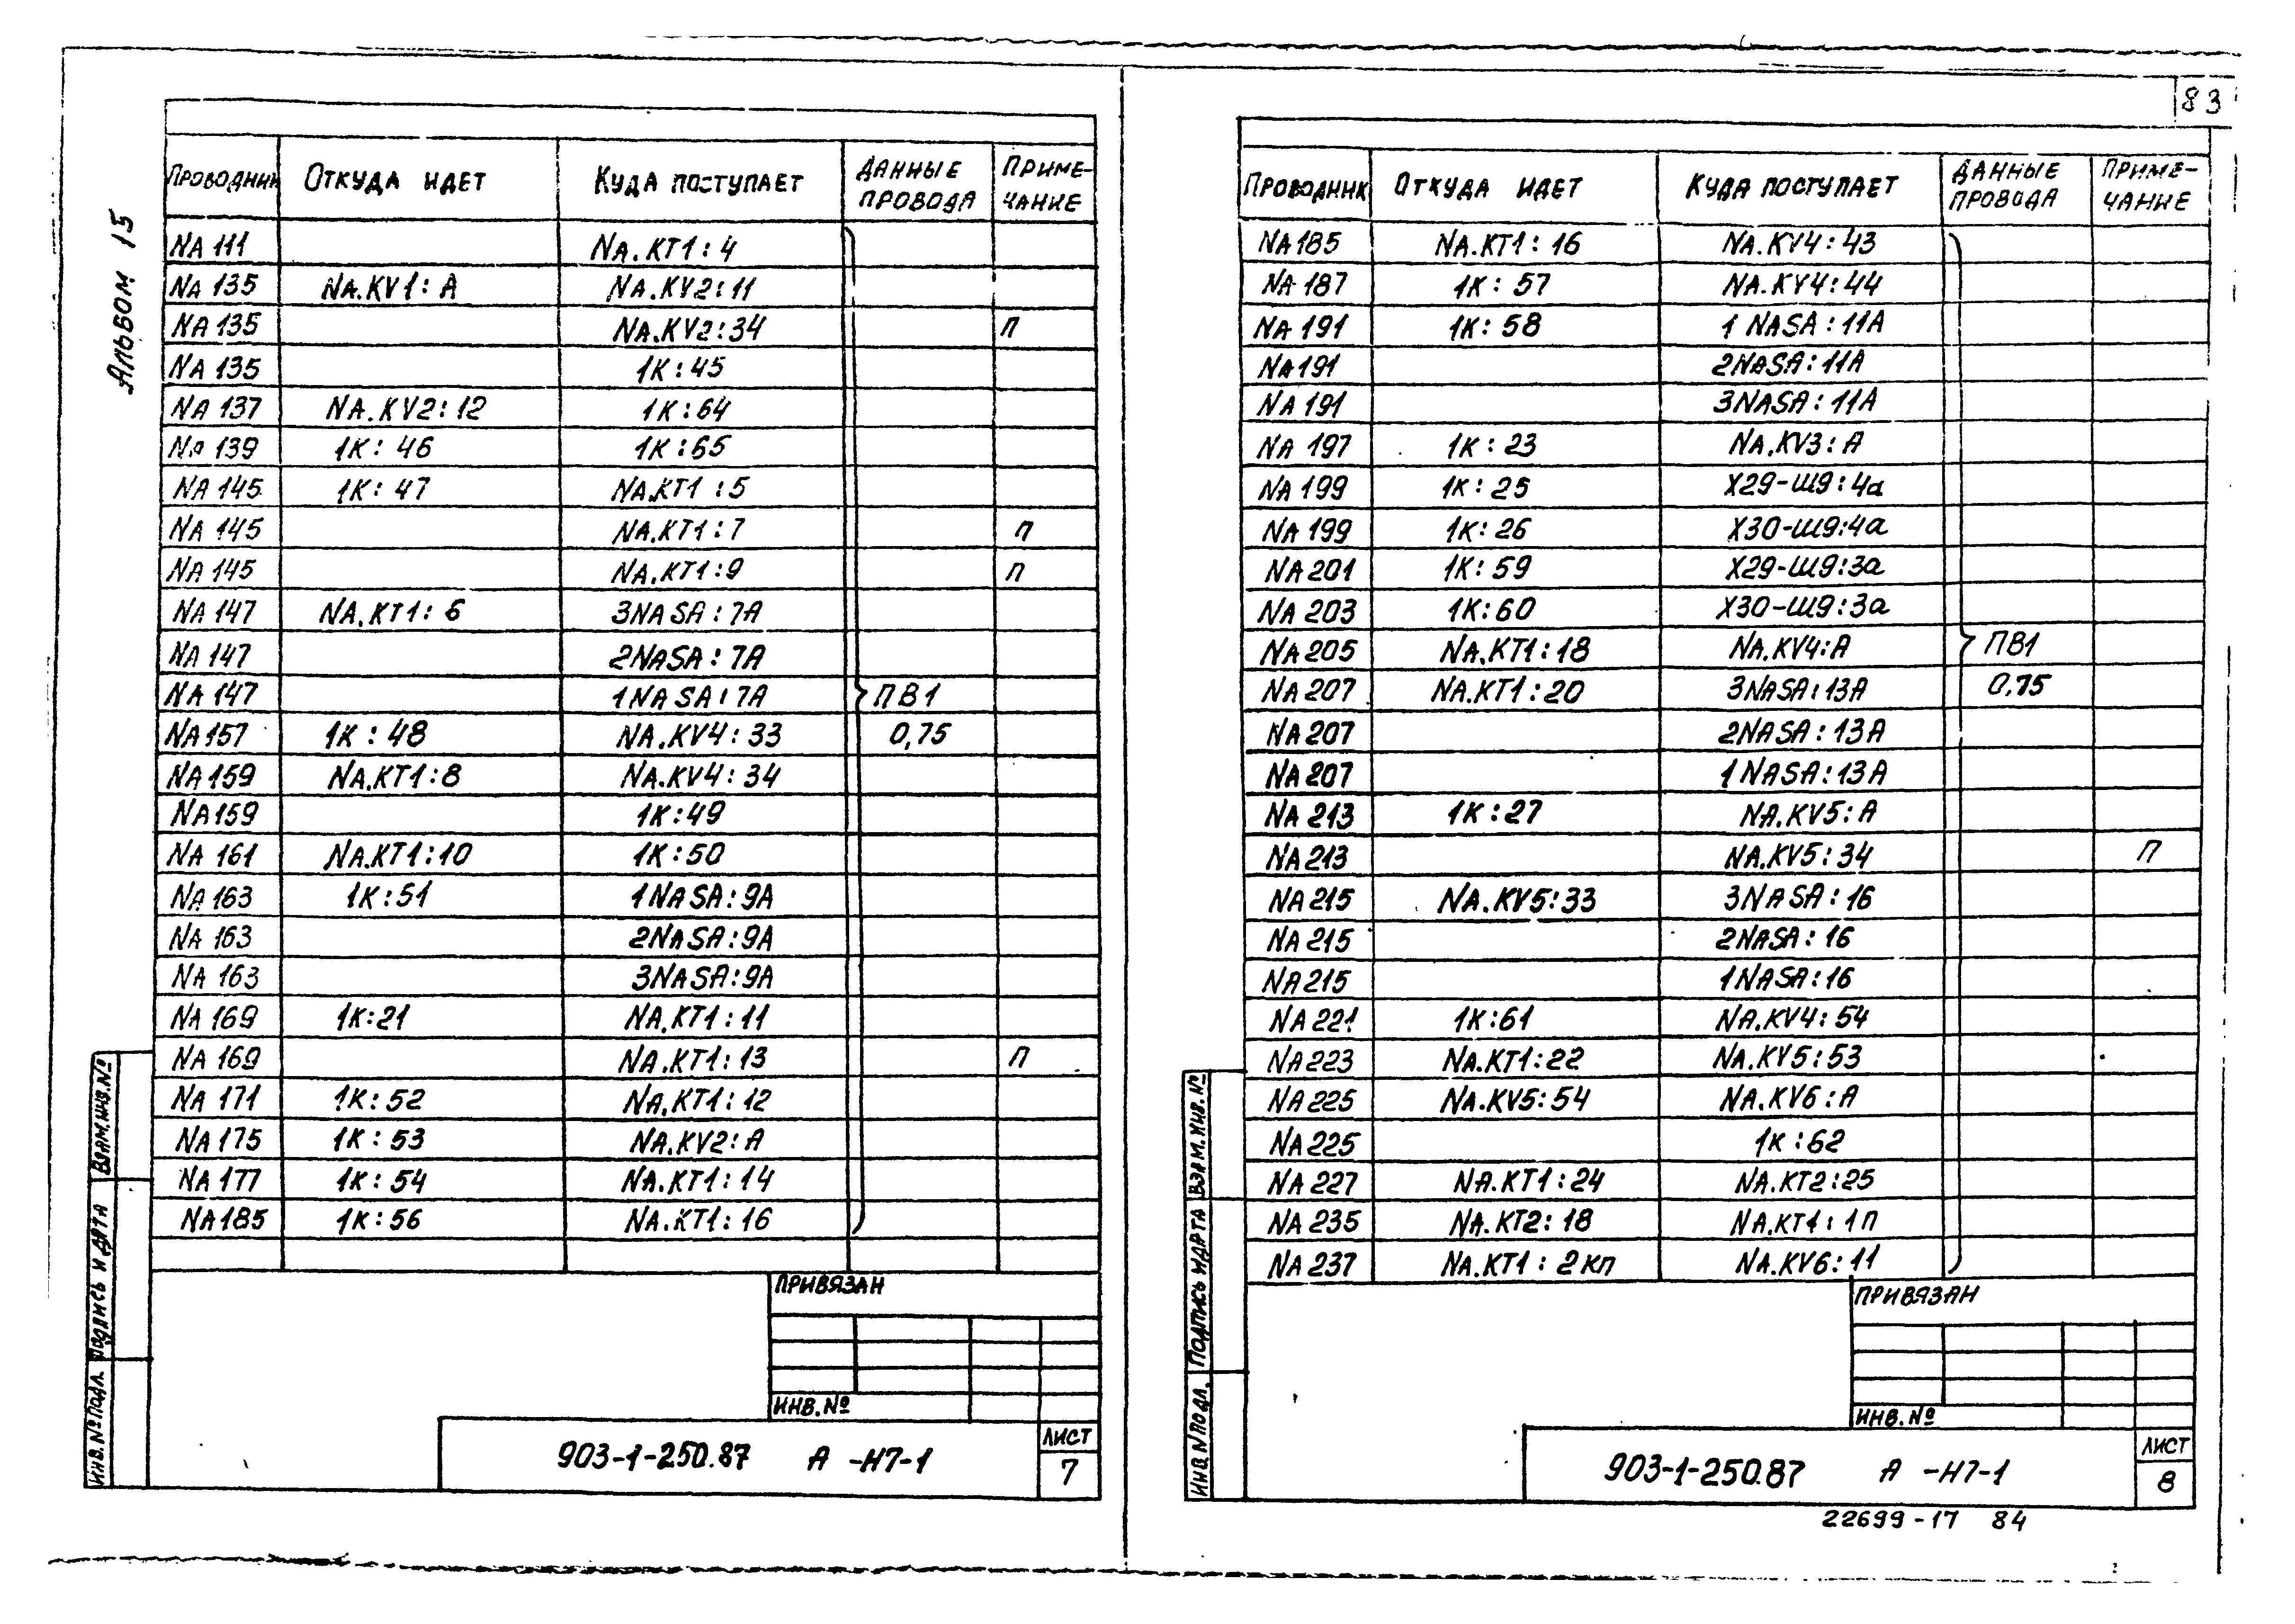 83
Альбом 15
Проводник Откуда идет Куда поступает Данные провода Примечание
NA 111 NA.KT1:4
NA 135 NA.KV1:A NA.KV2:11
NA 135 NA.KV2:34 П
NA 135 1К:45
NA 137 NA.KV2:12 1К:64
NA 139 1К:46 1К:65
NA 145 1К:47 NA.KT1:5
NA 145 NA.KT1:7 П
NA 145 NA.KT1:9 П
NA 147 NA.KT1:6 3NASA:7A
NA 147 2NASA:7A
NA 147 1NASA:7A ПВ1
NA 157 1К:48 NA.KV4:33 0,75
NA 159 NA.KT1:8 NA.KV4:34
NA 159 1К:49
NA 161 NA.KT1:10 1К:50
NA 163 1К:51 1NASA:9A
NA 163 2NASA:9A
NA 163 3NASA:9A
NA 169 1К:21 NA.KT1:11
NA 169 NA.KT1:13 П
NA 171 1К:52 NA.KT1:12
NA 175 1К:53 NA.KV2:A
NA 177 1К:54 NA.KT1:14
NA 185 1К:56 NA.KT1:16
Привязан
Инв.№
903-1-250.87 А -Н7-1
Лист
7
Инв.№ подл. Подпись и дата Взам.инв.№
Проводник Откуда идет Куда поступает Данные провода Примечание
NA 185 NA.KT1:16 NA.KV4:43
NA 187 1К:57 NA.KV4:44
NA 191 1К:58 1NASA:11A
NA 191 2NASA:11A
NA 191 3NASA:11A
NA 197 1К:23 NA.KV3:A
NA 199 1К:25 Х29-Ш9:4а
NA 199 1К:26 Х30-Ш9:4а
NA 201 1К:59 Х29-Ш9:3а
NA 203 1К:60 Х30-Ш9:3а
NA 205 NA.KT1:18 NA.KV4:A ПВ1
NA 207 NA.KT1:20 3NASA:13A 0,75
NA 207 2NASA:13A
NA 207 1NASA:13A
NA 213 1К:27 NA.KV5:A
NA 213 NA.KV5:34 П
NA 215 NA.KV5:33 3NASA:16
NA 215 2NASA:16
NA 215 1NASA:16
NA 221 1К:61 NA.KV4:54
NA 223 NA.KT1:22 NA.KV5:53
NA 225 NA.KV5:54 NA.KV6:A
NA 225 1К:62
NA 227 NA.KT1:24 NA.KT2:25
NA 235 NA.KT2:18 NA.KT1:1П
NA 237 NA.KT1:2КП NA.KV6:11
Привязан
Инв.№
903-1-250.87 А -Н7-1
Лист
8
Инв.№ подл. Подпись и дата Взам.инв.№
22699-17 84